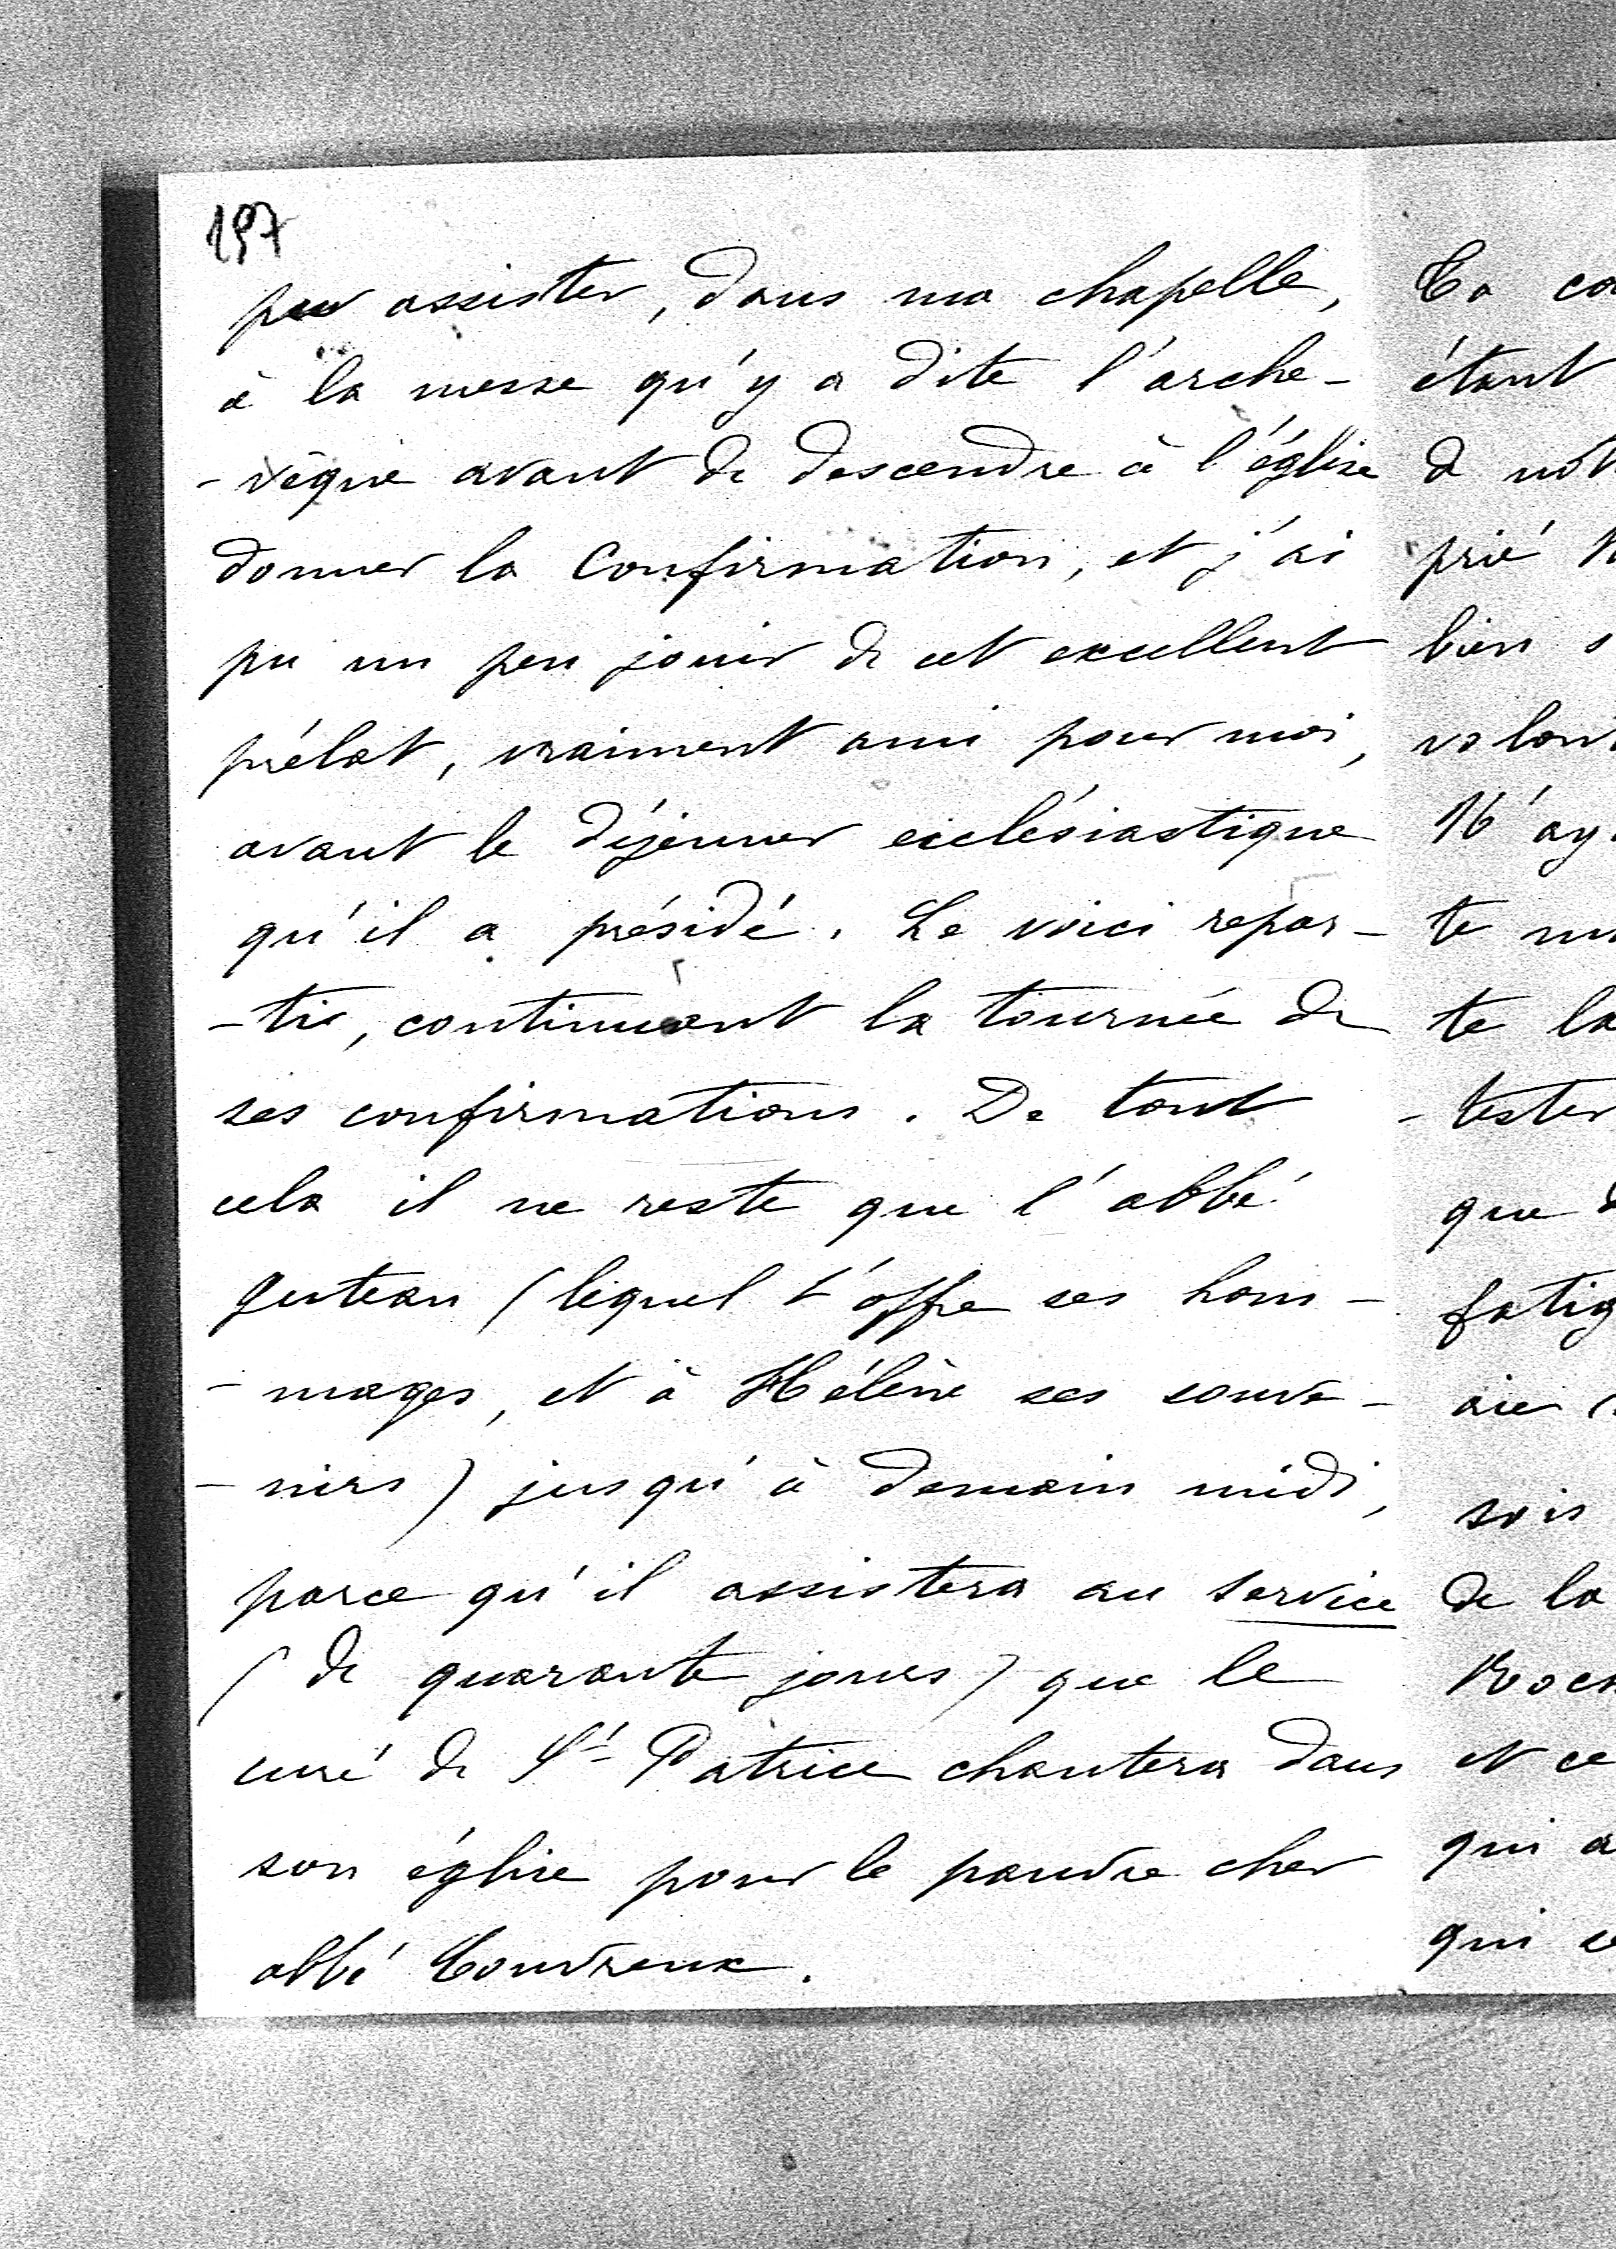 197
peu assister, dans ma chapelle,
à la messe qu'y a dite l'arche-
-vêque avant de descendre à l'église
donner la Confirmation, et j'ai
pu un peu jouir de cet excellent
prélat, vraiment ami pour moi,
avant le déjeuner ecclésiastique
qu'il a présidé. Le voici repar-
-ti, continuant la tournée de
ses confirmations. De tout
cela il ne reste que l'abbé
(lequel t'offre ses hom-
-mages, et à Hélène ses souve-
-nirs) jusqu'à demain midi,
parce qu'il assistera au service
(de quarante jours) que le
curé de St Patrice chantera dans
son église pour le pauvre cher
abbé Couvreux.
Ta
étant
d
prié
bien
te
te la
-tester
que
aie
sois
de la
et ce
qui a
qui